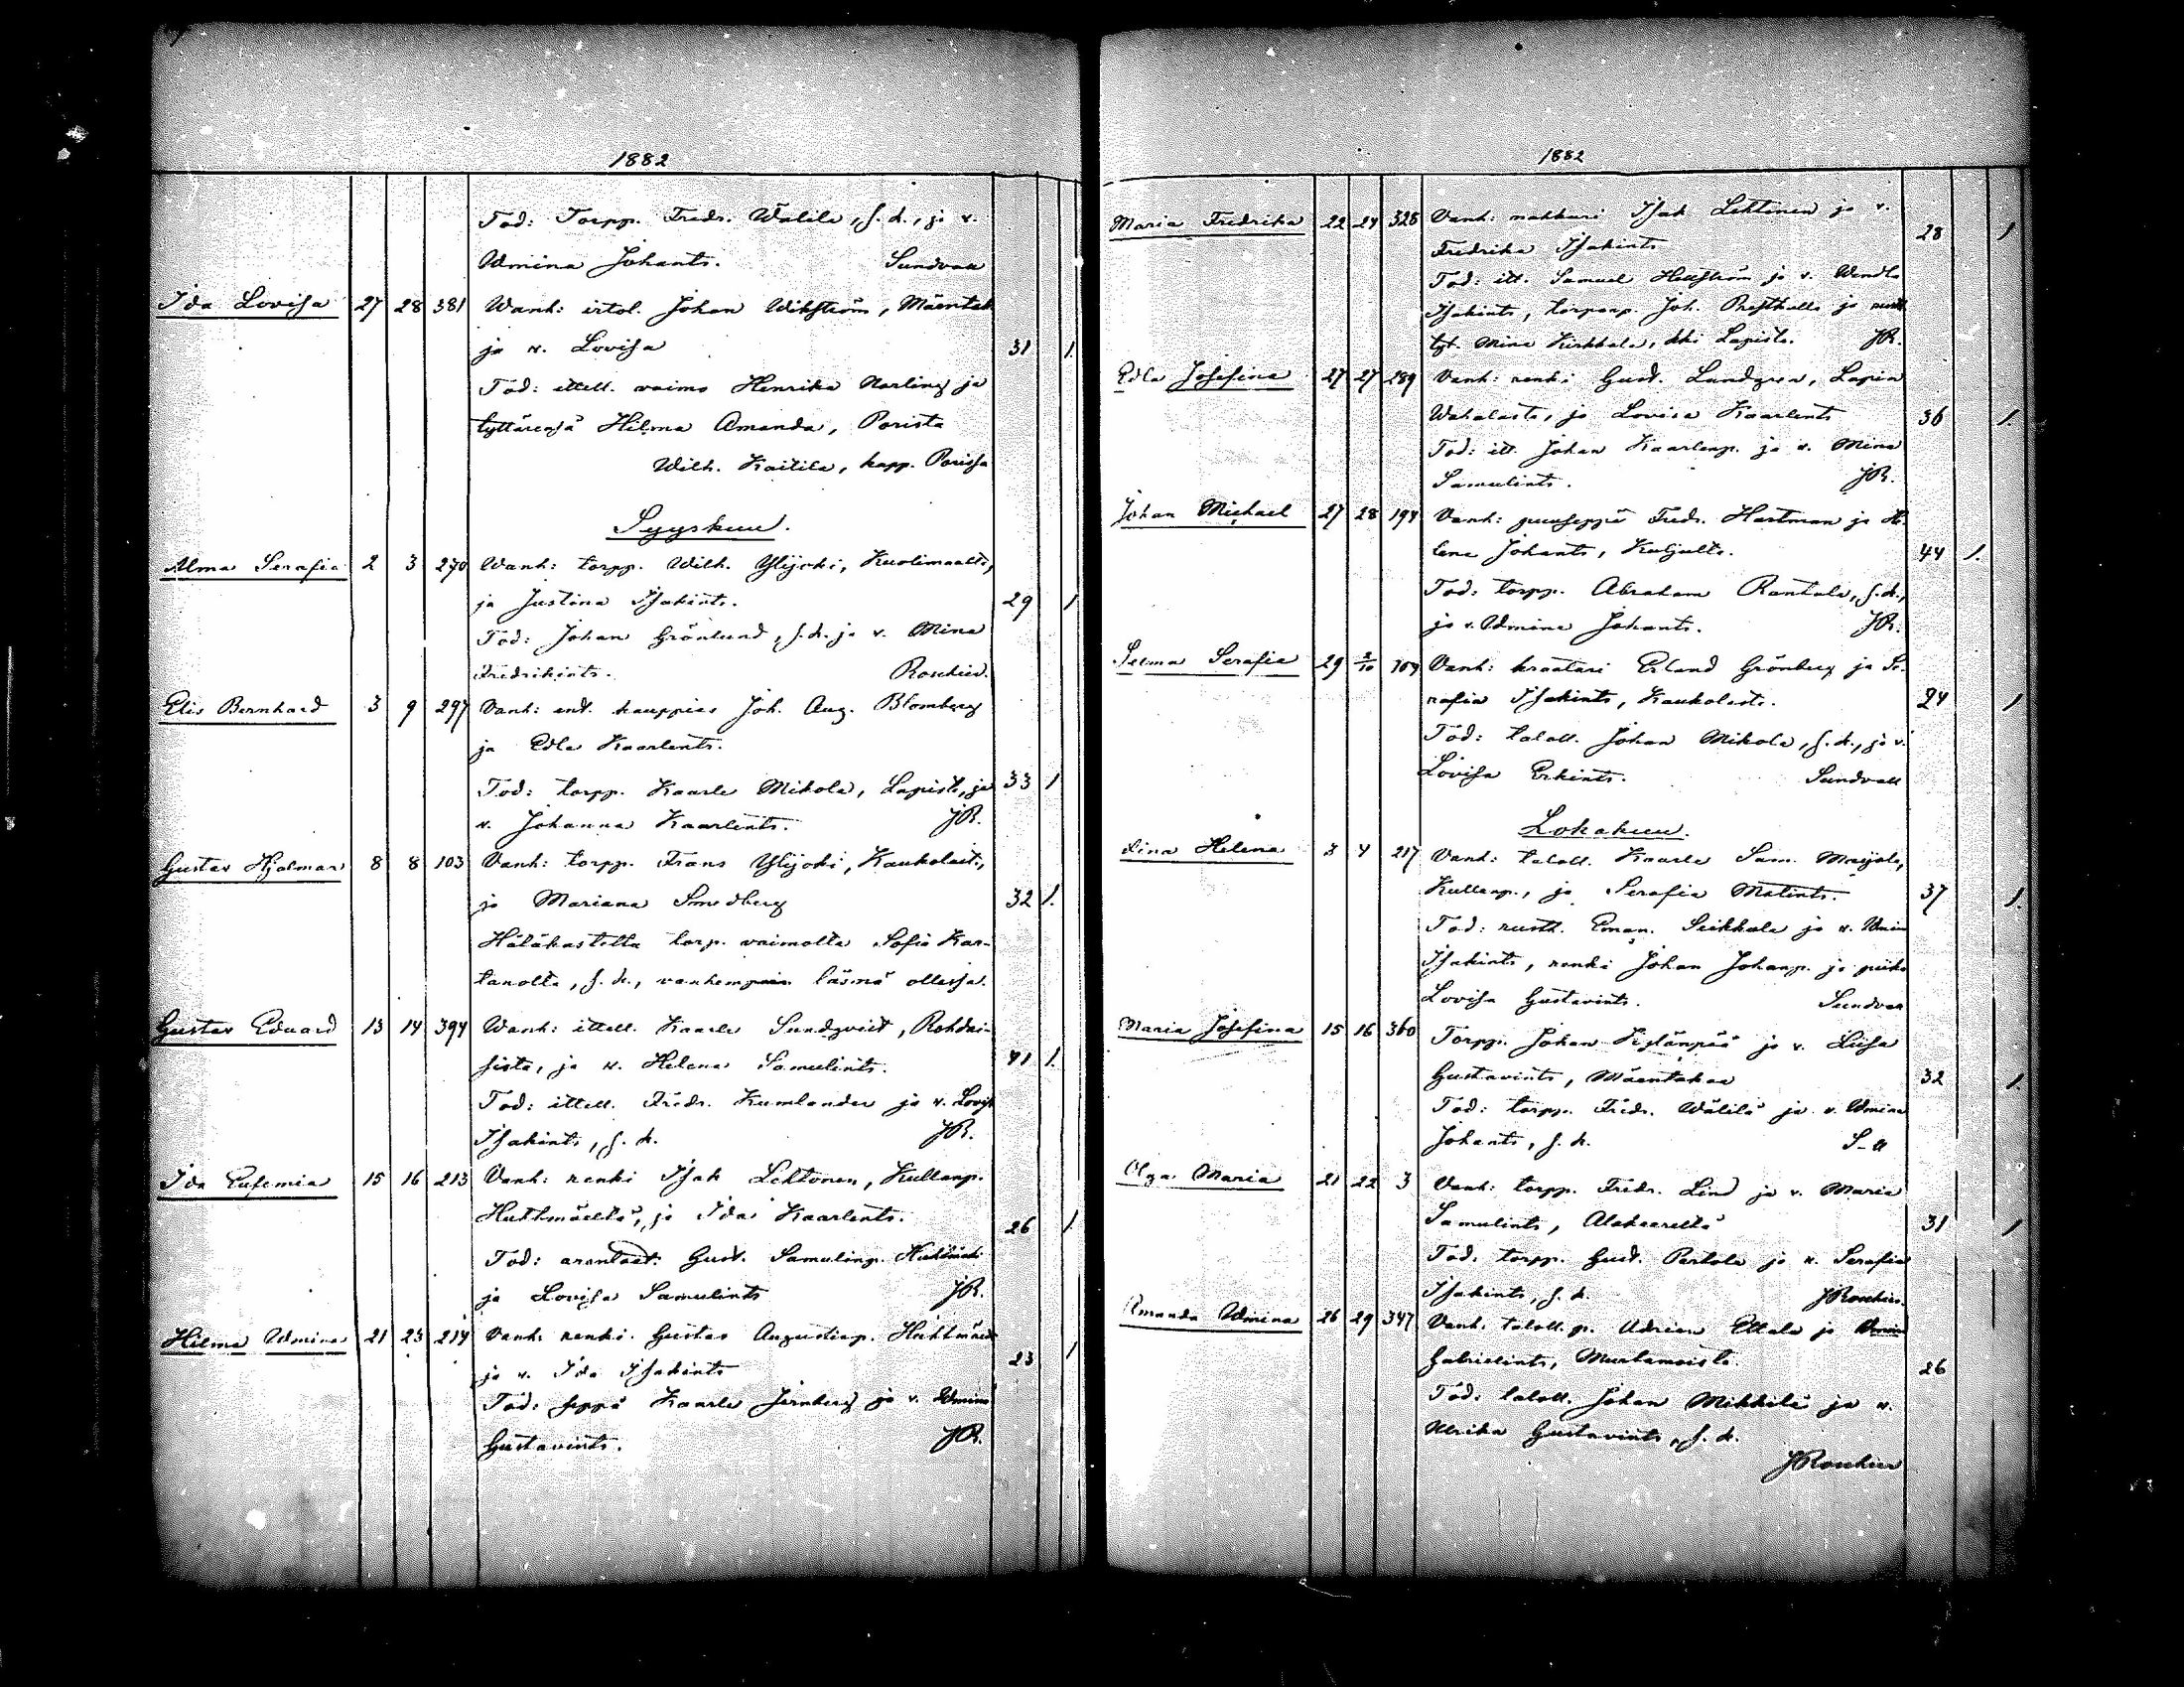 1882
Tod: Torpp. Fredr. Wälilä, s. k., ja v.
Wmina Johants. Sundvall
Ida Lovisa 27 28 381 Wanh: irtol. Johan Wikström, Mäentak
ja v. Lovisa 31 1.
Tod: ittell. vaimo Henrika Norling ja
tyttärensä Hilma Amanda, Porista
Wilh. Kaitila, kapp. Porissa
Syyskuu.
Alma Serafia 2 3 270 Wanh: torpp. Wilh. Ylijoki, Kuolimaalta,
ja Justina Isakints. 29 1
Tod: Johan Grönlund, s. k. ja v. Mina
Fredrikints. Roschier.
Elis Bernhard 3 9 297 Vanh: ent. kauppias Joh. Aug. Blomberg
ja Edla Kaarlents.
Tod: torpp. Kaarle Mikola, Lapista, ja 33 1
v. Johanna Kaarlents. JR.
Gustav Hjalmar 8 8 103 Vanh: torpp. Frans Ylijoki, Kaukolast.,
ja Mariana Smedberg 32 1.
Hätäkastettu torp. vaimolta Sofia Kar-
tanolta, s. k., vanhempain läsnä ollessa.
Gustav Eduard 13 14 394 Wanh: ittell. Kaarle Sundqvist, Rohdai-
sista, ja v. Helena Samulints. 41 1.
Tod: ittell. Fredr. Kumlander ja v. Lovisa
Isakints, s. k. JR.
Ida Eufemia 15 16 213 Vanh: renki Isak Lehtonen, Kullanp.
Huhtmäeltä, ja Ida Kaarlents. 26 1
Tod: arentaat. Gust. Samulinp. Huhtmäki
ja Lovisa Samulints JR.
Hilma Wmina 21 23 214 Vanh: renki Gustav Augustinp. Huhtmäki
ja v. Ida Isakints 23 1
Tod: seppä Kaarle Jernberg ja v. Wmina
Gustavints. JR.
1882
Maria Fredrika 22 24 328 Vanh: makkari Isak Lehtinen ja v.
Fredrika Isakints 28 1
Tod: itt. Samuel Hellström ja v. Wendla
Isakints, torpanp. Joh. Prestkulla ja
tyt. Mina Kirkkala, kki Lapista. JR.
Edla Josefina 27 27 289 Vanh: renki Gust. Lundgren, Lapin
Wahalasta, ja Lovisa Kaarlents 36 1.
Tod: itt. Johan Kaarlenp. ja v. Mina
Samulints. JR.
Johan Michael 27 28 194 Vanh: puuseppä Fredr. Hartman ja He-
lena Johants, Kuljulta. 44 1.
Tod: torpp. Abraham Rantala, s. k.,
ja v. Wmina Johants. JR.
Selma Serafia 29 2/10 109 Vanh: kraatari Erland Grönberg ja Se-
rafia Isakints, Kaukolasta. 24 1
Tod: taloll. Johan Mikola, s. k., ja v.
Lovisa Erkints. Sundvall
Lokakuu.
Lina Helena 3 4 217 Vanh: taloll. Kaarle Sam. Marjola,
Kullanp., ja Serafia Matints. 37 1.
Tod: rustt. Eman. Seikkala ja v. Wmina
Isakints, renki Johan Johanp. ja piika
Lovisa Gustavints. Sundvall
Maria Josefina 15 16 360 Torpp. Johan Kylänpää ja v. Liisa
Gustavints, Mäentakaa 32 1.
Tod: torpp. Fredr. Wälilä ja v. Wmina
Johants, s. k. S-ll
Olga Maria 21 22 3 Vanh: torpp. Fredr. Lind ja v. Maria
Samulints, Alakaarelta 31 1
Tod. torpp. Gust. Pertola ja v. Serafia
Isakints, s. k. JRoschier.
Amanda Wmina 26 29 347 Vanh. taloll. p. Adrian Ettala ja Wmina
Gabrielints, Murtamoista. 26
Tod: taloll. Johan Mikkilä ja v.
Ulrika Gustavints, s. k.
JRoschier